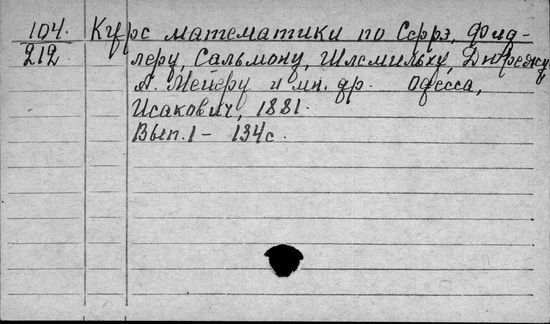 104. Курс математики по Серрэ, Фид-
212 леру, Сальмону, Шлемильху, Дюрежу,
А. Мейеру и мн. др. Одесса,
Исакович, 1881.
Вып. 1 - 134 с.